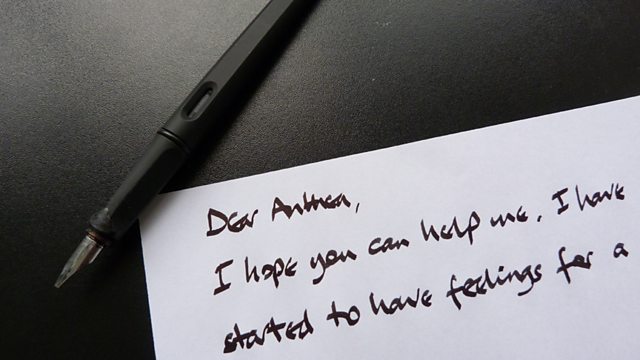 Dear Anthea,
I hope you can help me. I have
started to have feelings for a